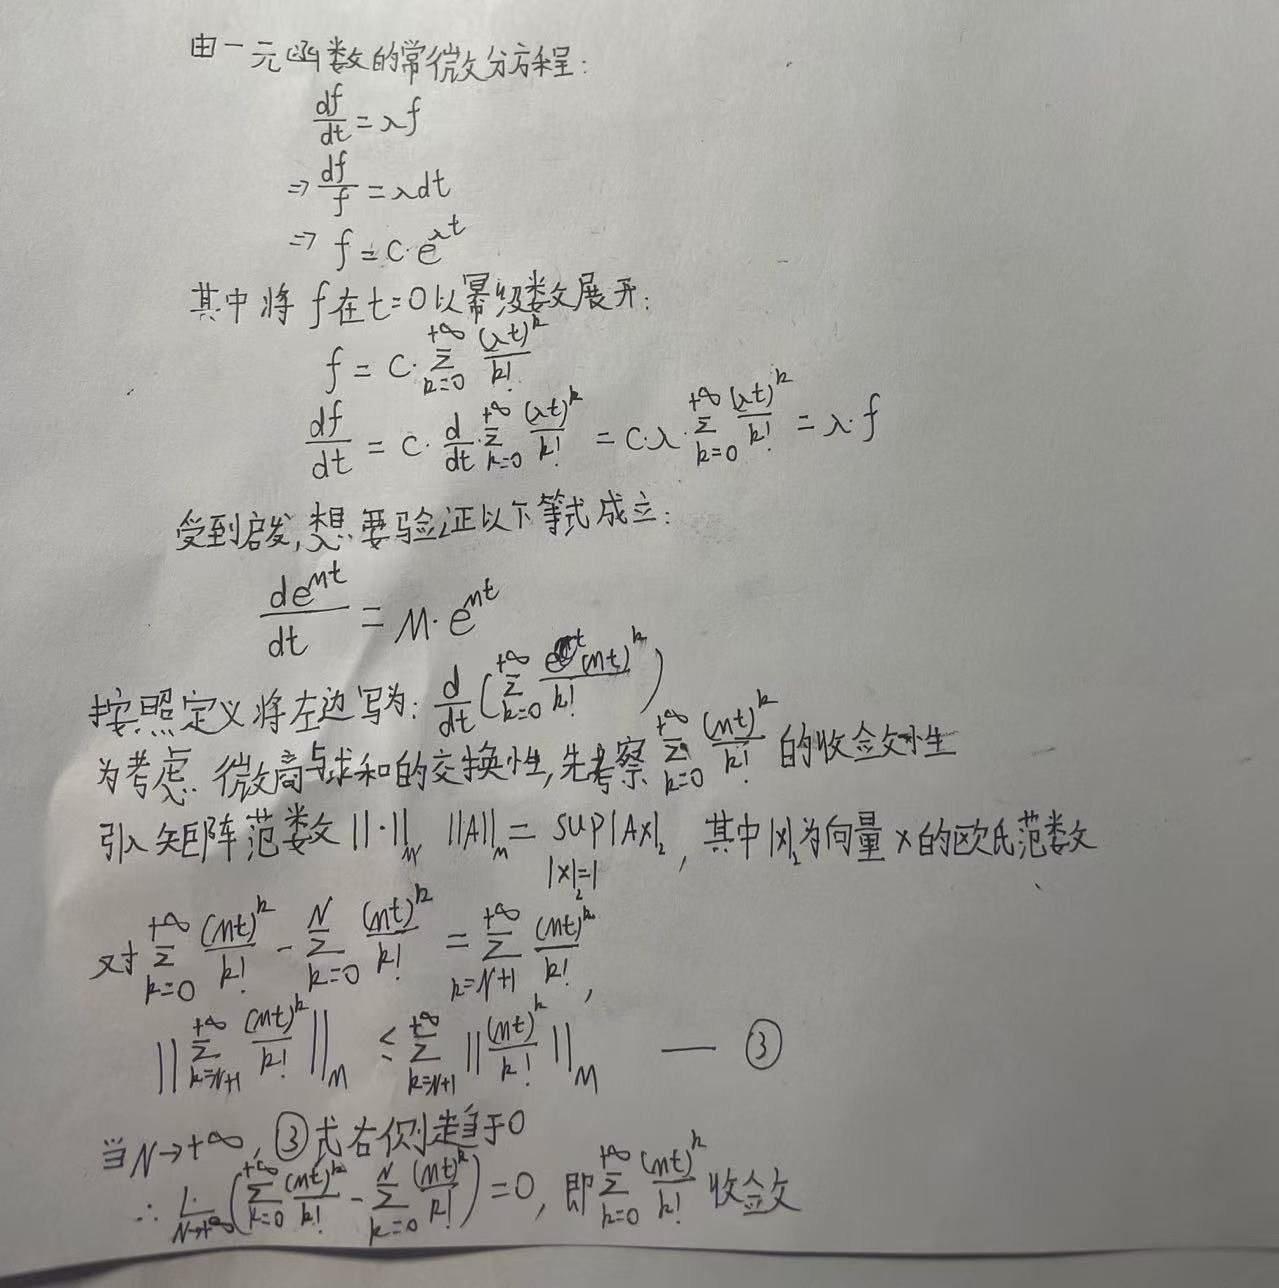 由一元函数的常微分方程:
df/dt = λf
⇒ df/f = λdt
⇒ f = C·e^{λt}
其中将 f 在 t=0 以幂级数展开:
f = C·∑_{k=0}^{+∞} (λt)^k/k!
df/dt = C·d/dt·∑_{k=0}^{+∞} (λt)^k/k! = C·λ·∑_{k=0}^{+∞} (λt)^k/k! = λ·f
受到启发,想要验证以下等式成立:
de^{Mt}/dt = M·e^{Mt}
按照定义将左边写为: d/dt(∑_{k=0}^{+∞} (Mt)^k/k!)
为考虑微商与求和的交换性,先考察 ∑_{k=0}^{+∞} (Mt)^k/k! 的收敛性
引入矩阵范数 ||·||_M ||A||_M = sup_{|x|_2=1} |Ax|_2, 其中|x|_2为向量 x 的欧氏范数
对 ∑_{k=0}^{+∞} (Mt)^k/k! - ∑_{k=0}^{N} (Mt)^k/k! = ∑_{k=N+1}^{+∞} (Mt)^k/k!,
||∑_{k=N+1}^{+∞} (Mt)^k/k!||_M ≤ ∑_{k=N+1}^{+∞} ||(Mt)^k/k!||_M — ③
当 N→+∞, ③式右侧趋于0
∴ lim_{N→+∞}(∑_{k=0}^{+∞} (Mt)^k/k! - ∑_{k=0}^{N} (Mt)^k/k!) = 0, 即 ∑_{k=0}^{+∞} (Mt)^k/k! 收敛